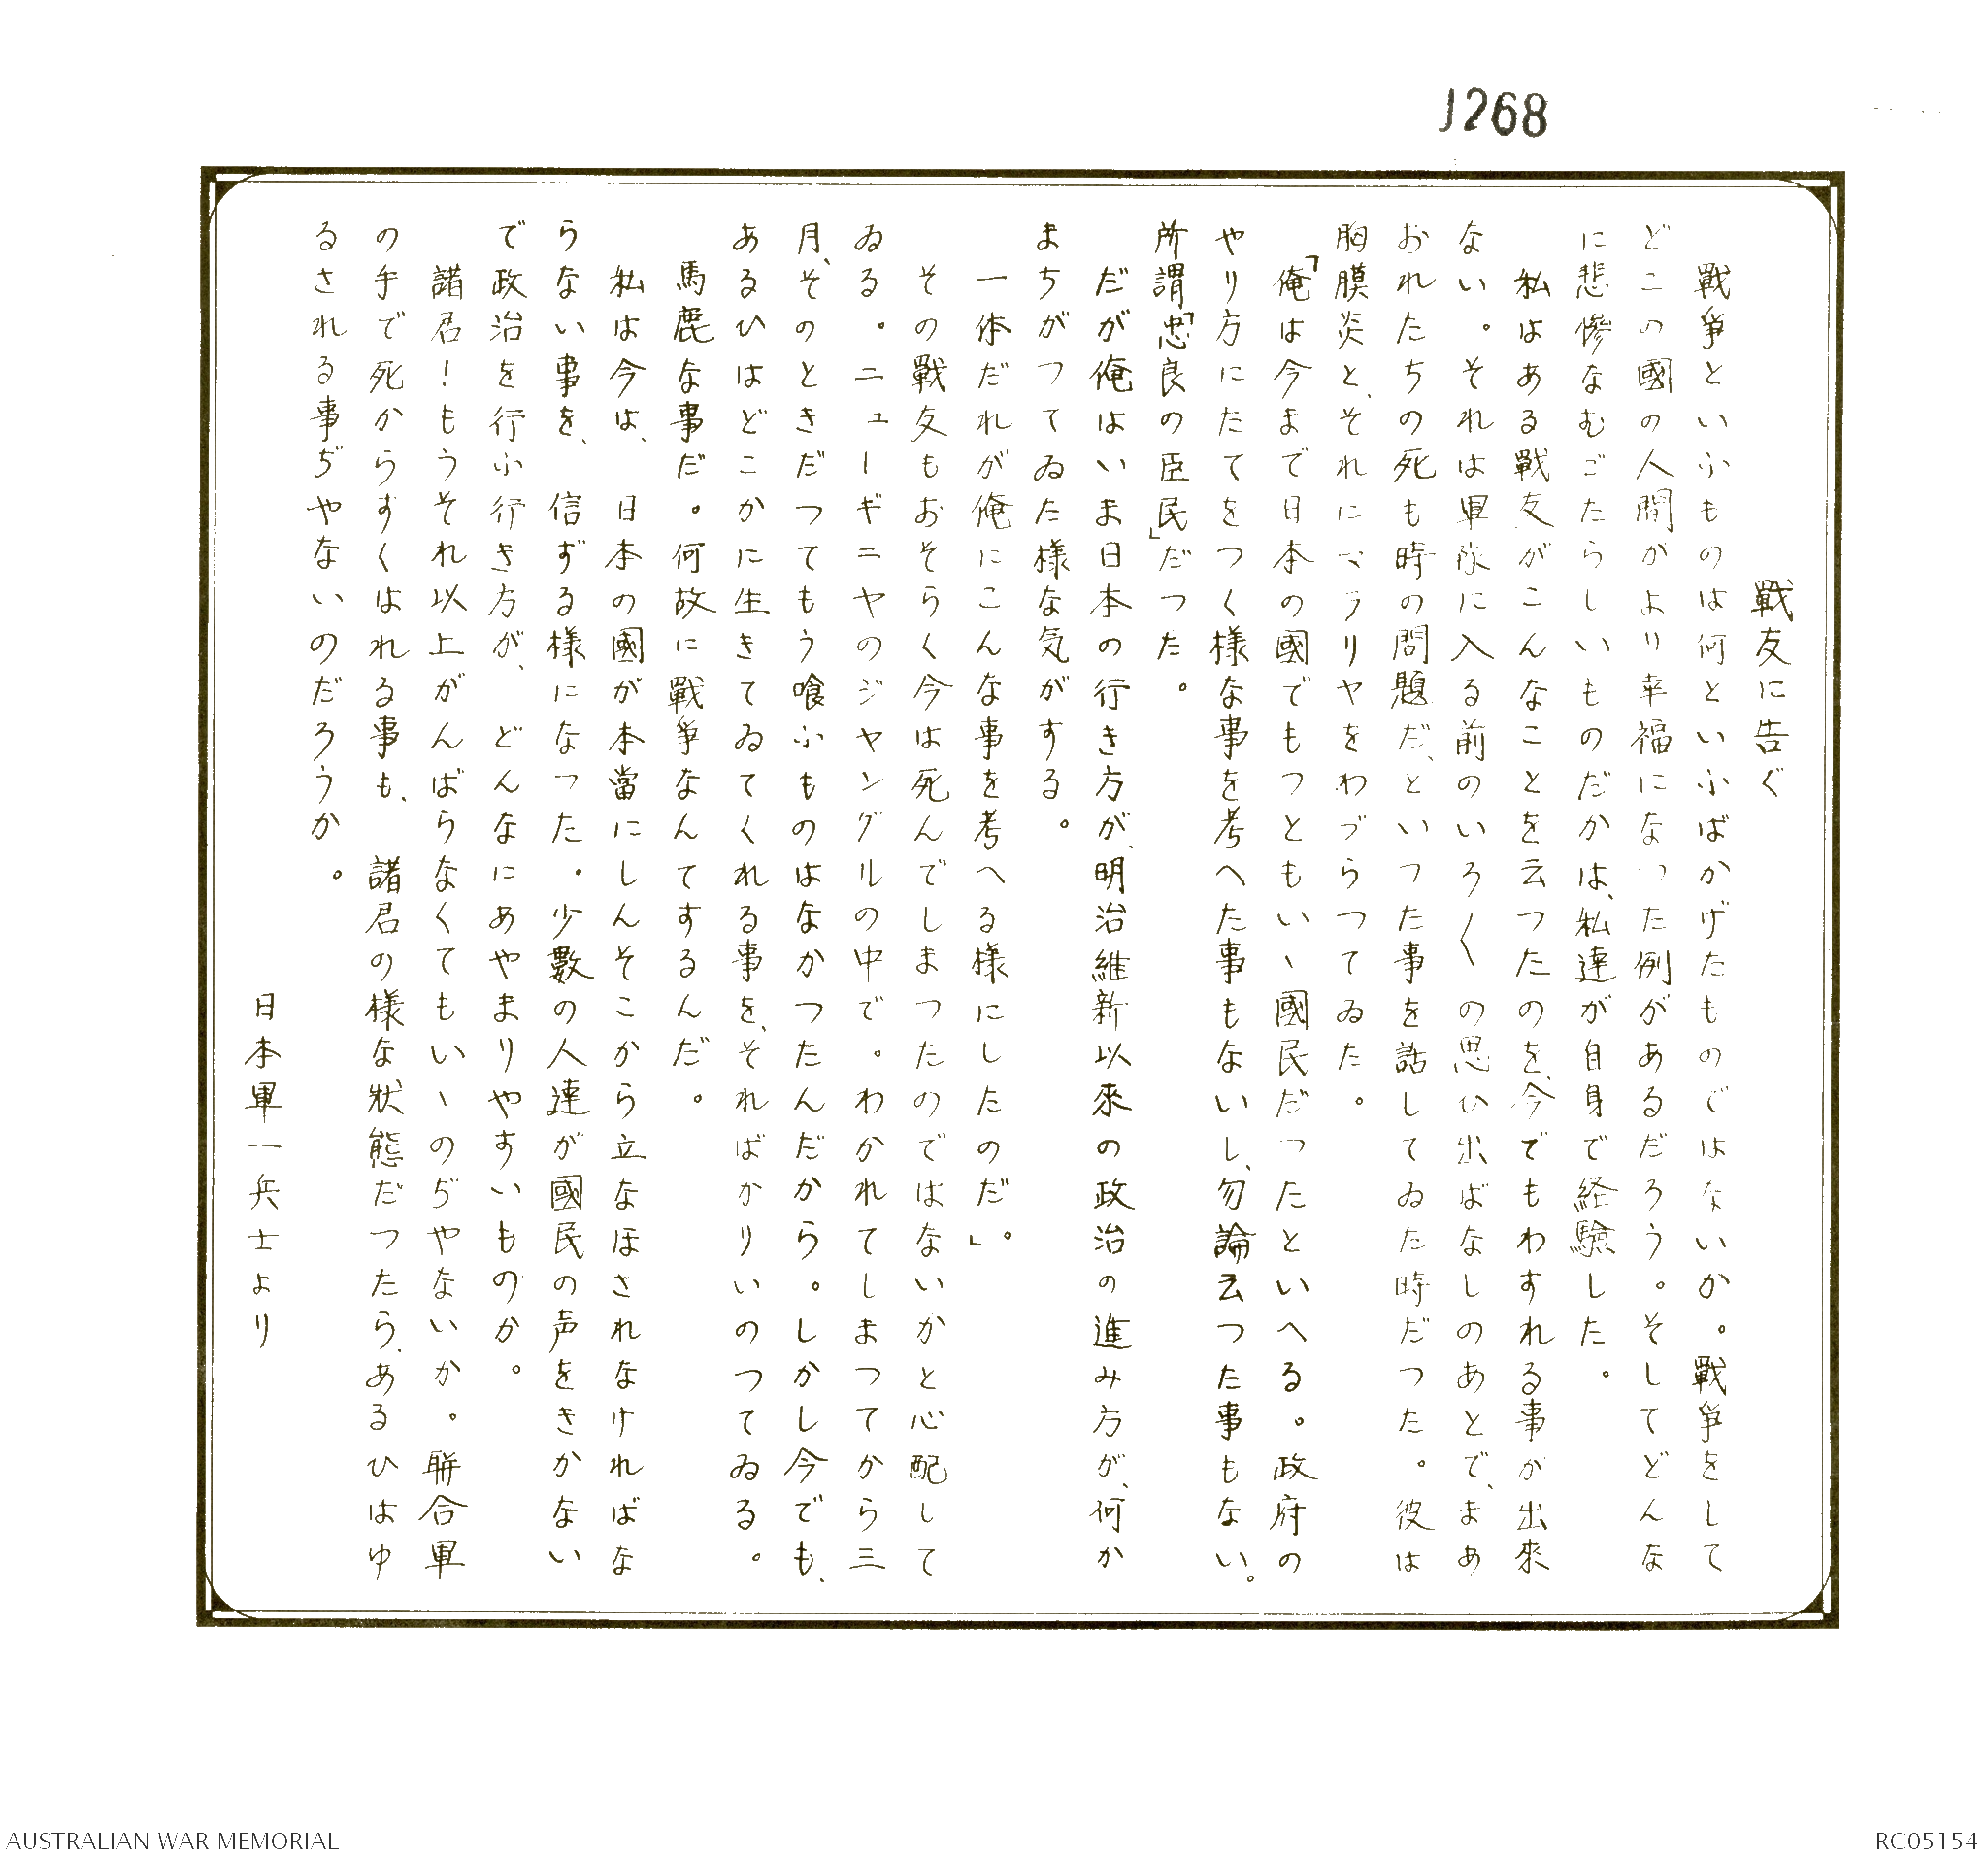 J268
戰友に告ぐ
戰爭といふものは何といふばかげたものではないか。戰爭をして
どこの國の人間がより幸福になつた例があるだろう。そしてどんな
に悲慘なむごたらしいものだかは、私達が自身で経驗した。
私はある戰友がこんなことを云つたのを、今でもわすれる事が出來
ない。それは軍隊に入る前のいろ〱の思ひ出ばなしのあとで、まあ
おれたちの死も時の問題だ、といつた事を話してゐた時だつた。彼は
胸膜炎と、それにマラリヤをわづらつてゐた。
「俺は今まで日本の國でもつともいゝ國民だつたといへる。政府の
やり方にたてをつく様な事を考へた事もないし、勿論云つた事もない。
所謂「忠良の臣民」だつた。
だが俺はいま日本の行き方が、明治維新以來の政治の進み方が、何か
まちがつてゐた様な気がする。
一体だれが俺にこんな事を考へる様にしたのだ」。
その戰友もおそらく今は死んでしまつたのではないかと心配して
ゐる。ニューギニヤのジヤングルの中で。わかれてしまつてから三
月、そのときだつてもう喰ふものはなかつたんだから。しかし今でも、
あるひはどこかに生きてゐてくれる事を、そればかりいのつてゐる。
馬鹿な事だ。何故に戰爭なんてするんだ。
私は今は、日本の國が本當にしんそこから立なほされなければな
らない事を、信ずる様になつた。少數の人達が國民の声をきかない
で政治を行ふ行き方が、どんなにあやまりやすいものか。
諸君!もうそれ以上がんばらなくてもいゝのぢやないか。聨合軍
の手で死からすくはれる事も、諸君の様な狀態だつたら、あるひはゆ
るされる事ぢやないのだろうか。
日本軍一兵士より
AUSTRALIAN WAR MEMORIAL
RC05154